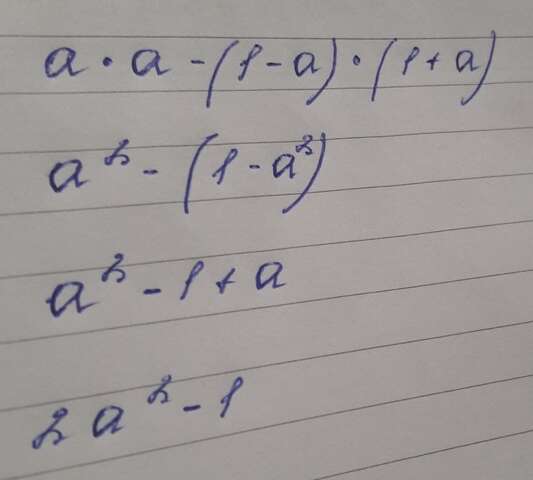 a · a - (1 - a) · (1 + a)
a² - (1 - a²)
a² - 1 + a
2a² - 1